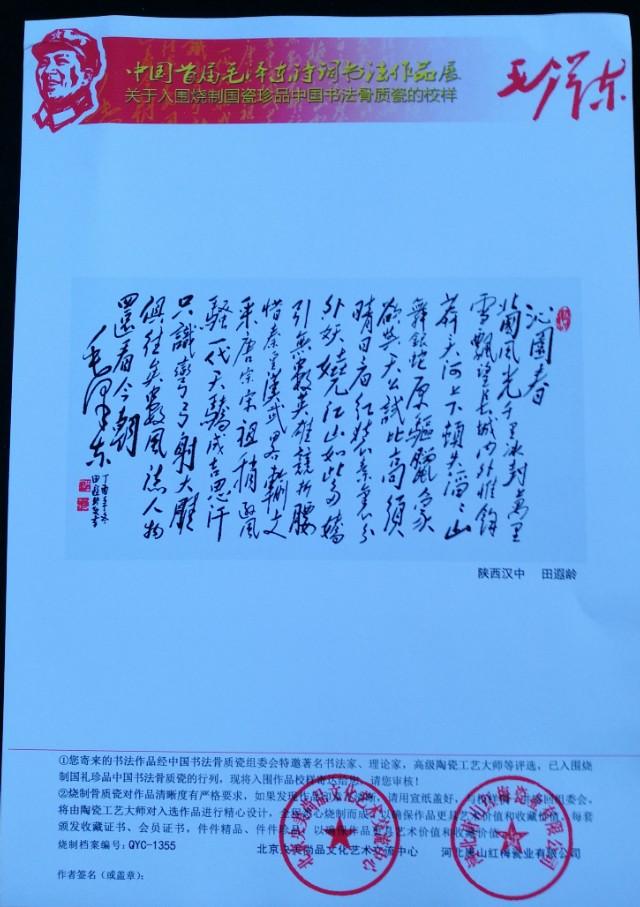 中国首届毛泽东诗词书法作品展
关于入围烧制国瓷珍品中国书法骨质瓷的校样
毛泽东
沁園春
北國風光千里冰封萬里
雪飄望長城內外惟餘
莽莽大河上下頓失滔滔山
舞銀蛇原驅臘象
欲與天公試比高須
晴日看紅裝素裹分
外妖嬈江山如此多嬌
引無數英雄競折腰
惜秦皇漢武略輸文
采唐宗宋祖稍遜風
騷一代天驕成吉思汗
只識彎弓射大雕
俱往矣數風流人物
還看今朝
毛澤東
丁酉年冬
陕西汉中 田遐龄
①您寄来的书法作品经中国书法骨质瓷组委会特邀著名书法家、理论家，高级陶瓷工艺大师等评选，已入围烧
制国礼珍品中国书法骨质瓷的行列，现将入围作品校样寄达给您，请您审核！
②烧制骨质瓷对作品清晰度有严格要求，如果发现作品印章不清晰，请用宣纸盖好，与校样一并寄回组委会，
将由陶瓷工艺大师对入选作品进行精心设计，全程精心烧制而成，以确保作品更具艺术价值和收藏价值，每套
颁发收藏证书、会员证书，件件精品、件件珍品，以确保作品更具艺术价值和收藏价值。
烧制档案编号：QYC-1355 文化艺术交流中心 河北唐山红梅瓷业有限公司
作者签名（或盖章）：